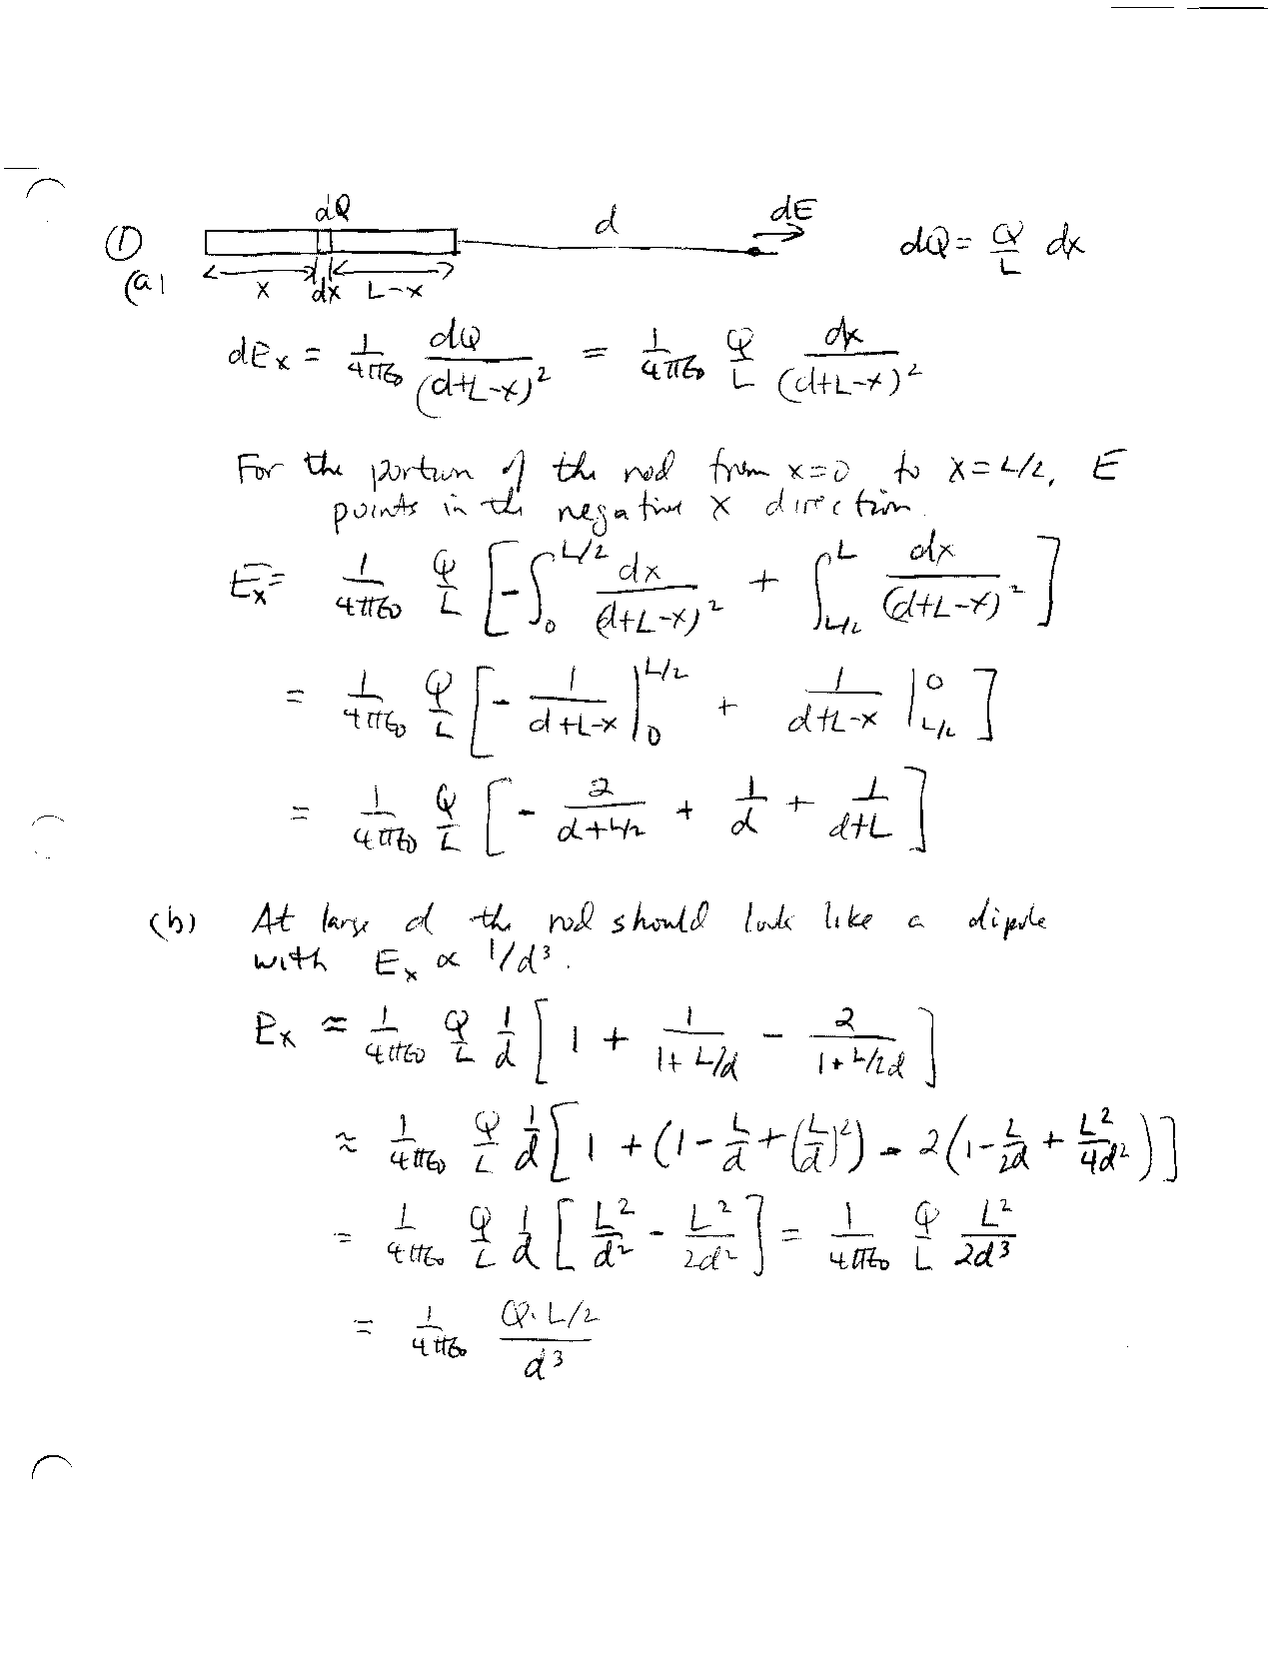 ① dQ d dE dQ = Q/L dx
(a) x dx L-x
dE_x = 1/4πε₀ dQ/(d+L-x)² = 1/4πε₀ Q/L dx/(d+L-x)²
For the portion of the rod from x=0 to x=L/2, E
points in the negative x direction.
E_x = 1/4πε₀ Q/L [ -∫₀^{L/2} dx/(d+L-x)² + ∫_{L/2}^{L} dx/(d+L-x)² ]
= 1/4πε₀ Q/L [ - 1/(d+L-x) |₀^{L/2} + 1/(d+L-x) |_{L/2}^{0} ]
= 1/4πε₀ Q/L [ - 2/(d+L/2) + 1/d + 1/(d+L) ]
(b) At large d the rod should look like a dipole
with E_x ∝ 1/d³.
E_x ≈ 1/4πε₀ Q/L 1/d [ 1 + 1/(1+L/d) - 2/(1+L/2d) ]
≈ 1/4πε₀ Q/L 1/d [ 1 + (1 - L/d + (L/d)²) - 2(1 - L/2d + L²/4d²) ]
= 1/4πε₀ Q/L 1/d [ L²/d² - L²/2d² ] = 1/4πε₀ Q/L L²/2d³
= 1/4πε₀ Q·L/2/d³